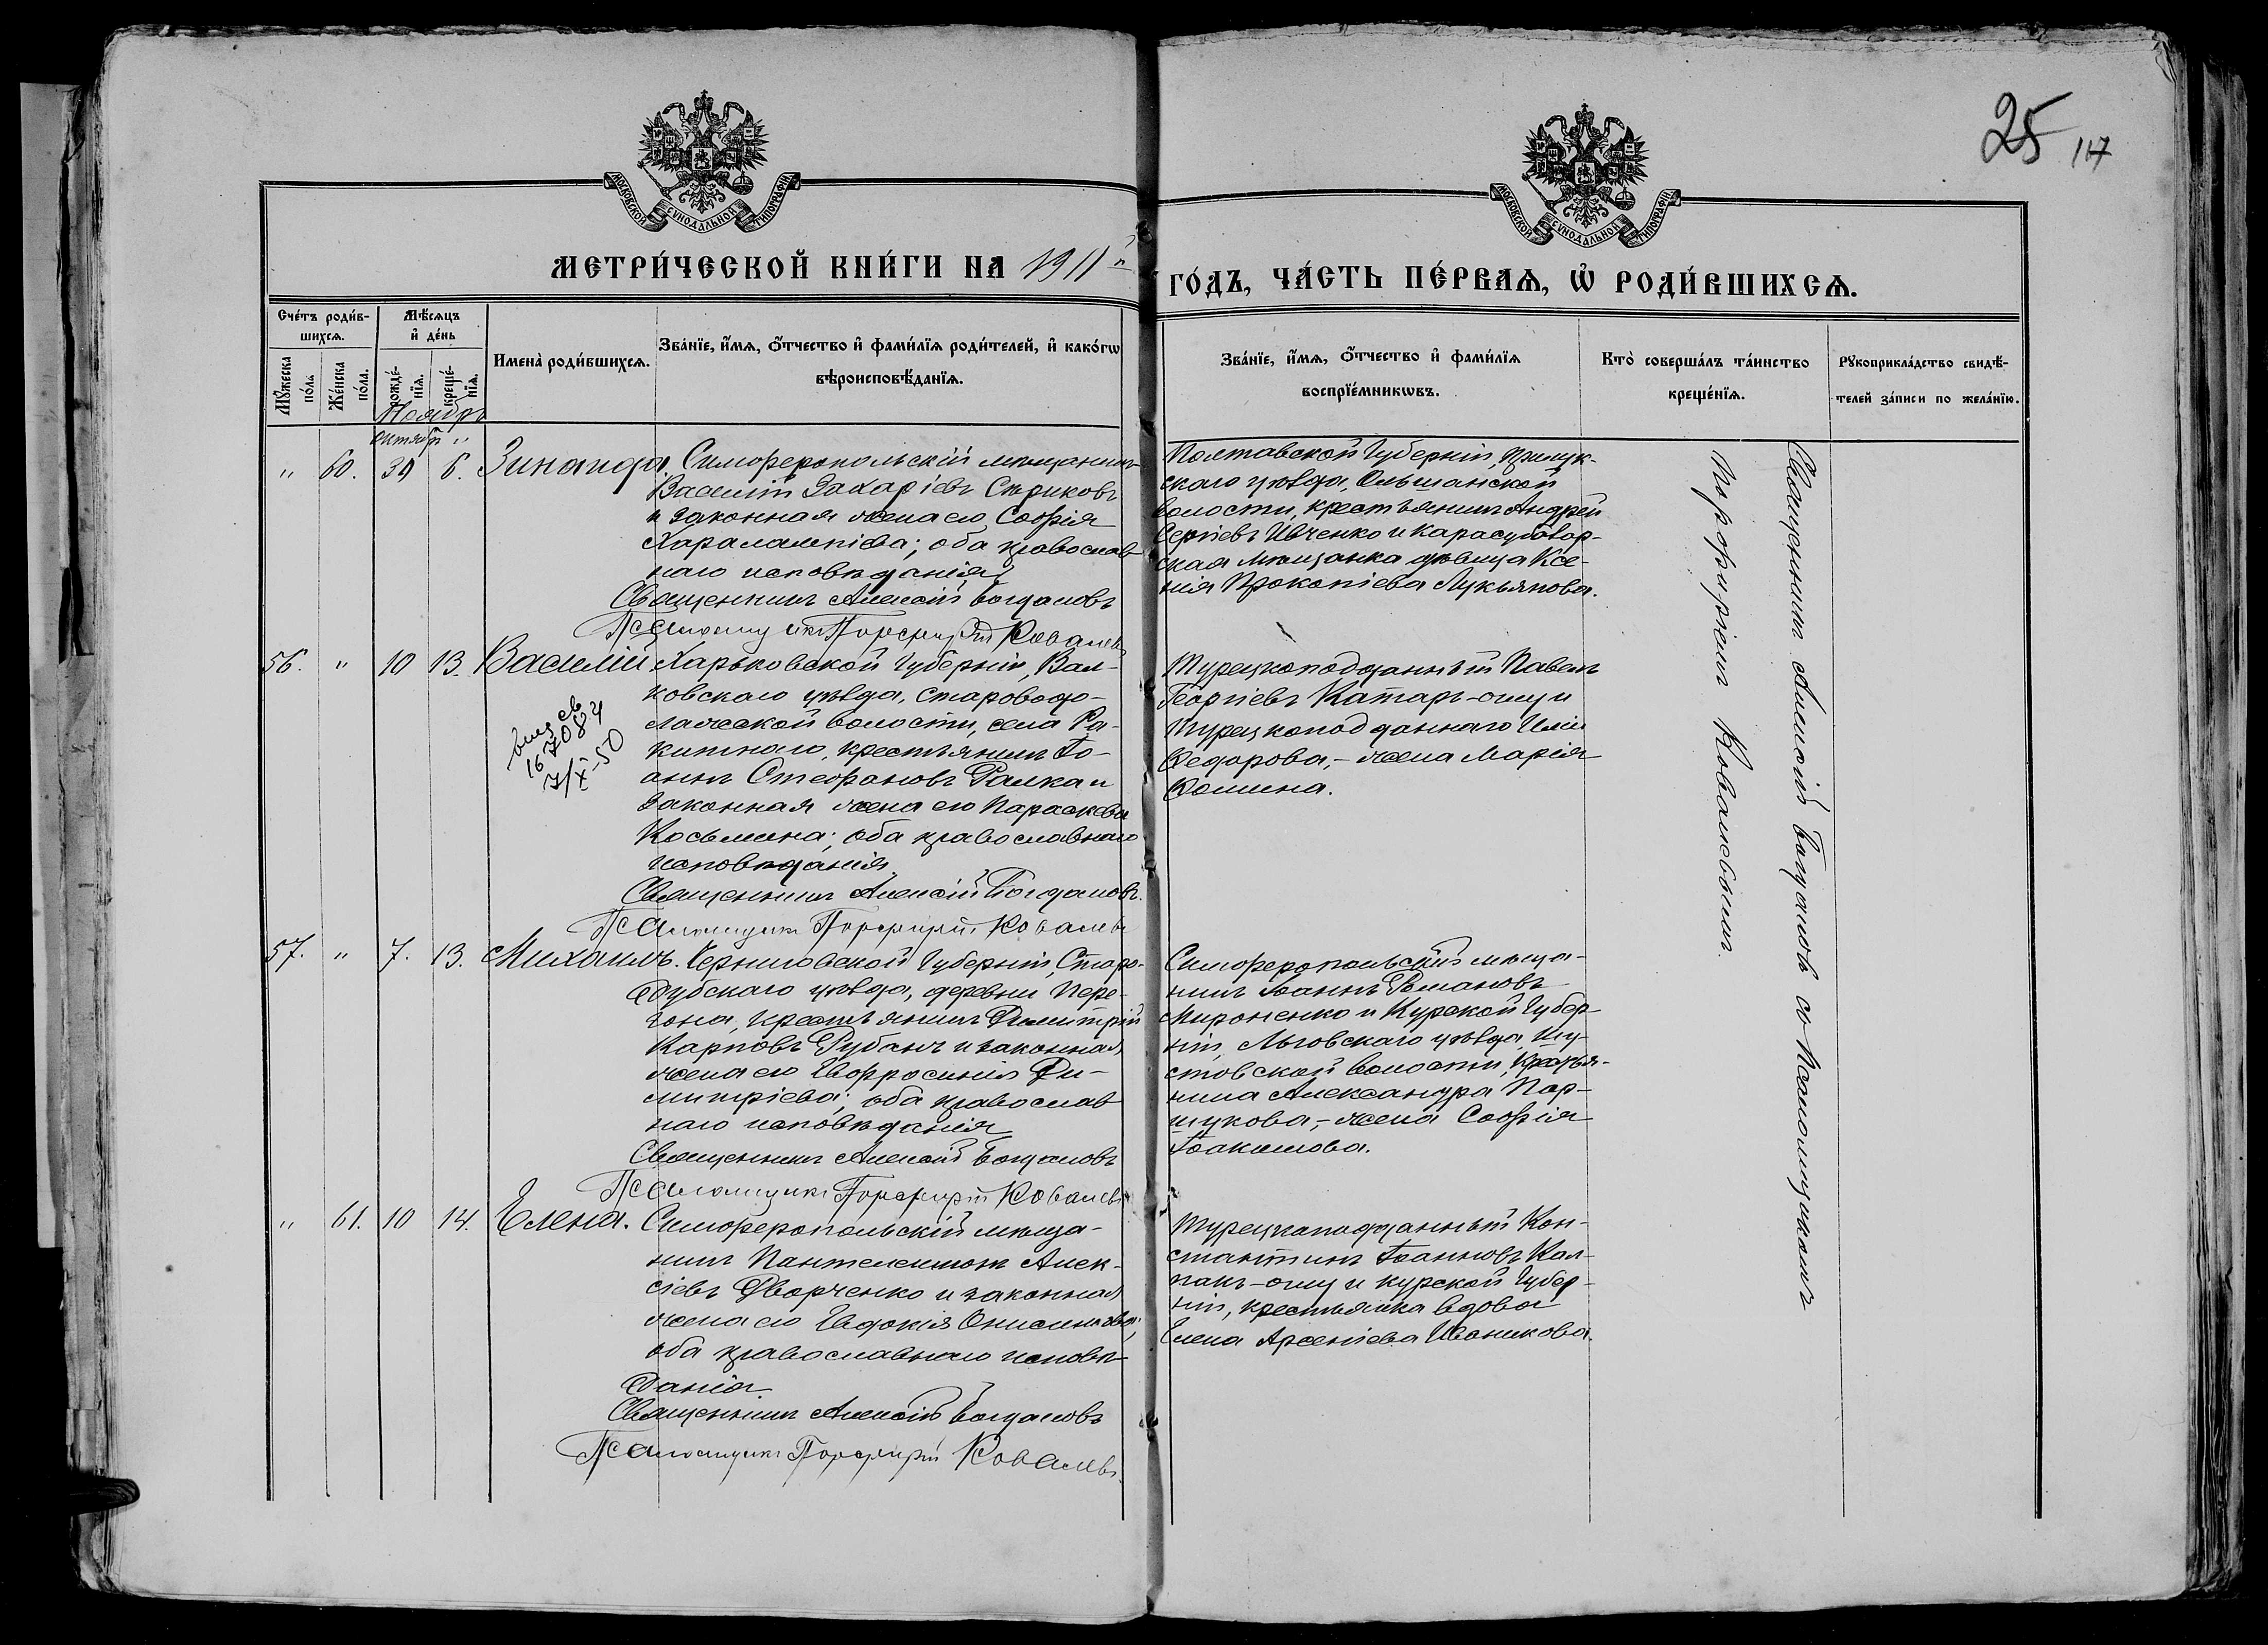 25 117
МОСКОВСКОЙ СУНОДАЛЬНОЙ ТИПОГРАФІИ
МОСКОВСКОЙ СУНОДАЛЬНОЙ ТИПОГРАФІИ
МЕТРИ́ЧЕСКОЙ КНИ́ГИ НА 1911й ГО́ДЪ, ЧА́СТЬ ПЕ́РВАѦ, Ѡ҆ РОДИ́ВШИХСѦ.
Сче́тъ роди́в-
шихсѧ.
Мꙋ́жеска по́ла.
Же́нска по́ла.
Мѣ́сѧцъ
и҆ де́нь
рожде́-
нїѧ.
креще́-
нїѧ.
Имена̀ роди́вшихсѧ.
Зва́нїе, и҆́мѧ, ѻ҆́тчество и҆ фами́лїѧ роди́телей, и҆ како́гѡ
вѣроисповѣ́данїѧ.
Зва́нїе, и҆́мѧ, ѻ҆́тчество и҆ фами́лїѧ
воспрїе́мникѡвъ.
Кто̀ соверша́лъ та́инство
креще́нїѧ.
Рꙋкоприкла́дство свидѣ́-
телей за́писи по жела́нїю.
Ноябрь
Октябр. "
" 60. 30 6. Зинаида. Симферопольскій мѣщанинъ
Василій Захаріевъ Сѣриковъ
и законная жена его Софія
Харалампіева; оба православ
наго исповѣданія
Священникъ Алексій Богдановъ
Псаломщикъ Порфирій Ковалевъ
Полтавской губерніи, Прилук-
скаго уѣзда, Ольшанской
волости, крестьянинъ Андрей
Сергіевъ Ивченко и Карасубазар-
ская мѣщанка дѣвица Ксе-
нія Прокопіева Лукьянова.
56. " 10 13. Василій Харьковской губерніи, Вал-
ковскаго уѣзда, Староводо-
лажской волости, села Ра-
китнаго, крестьянинъ Іо-
аннъ Стефановъ Галка и
законная жена его Параскева
Косьмина; оба православнаго
исповѣданія.
Священникъ Алексій Богдановъ.
Псаломщикъ Порфирій Ковалевъ
выд св
167084
7/X-50
Турецкоподданный Павелъ
Георгіевъ Катаръ-оглу и
турецкоподданнаго Иліи
Федорова,- жена Марія
Фомина.
57. " 7. 13. Михаилъ. Черниговской губерніи, Старо-
дубскаго уѣзда, деревни Пере-
гона, крестьянинъ Димитрій
Карповъ Рубанъ и законная
жена его Евфросинія Ди-
митріева; оба православ
наго исповѣданія
Священникъ Алексій Богдановъ
Псаломщикъ Порфирій Ковалевъ
Симферопольскій мѣща-
нинъ Іоаннъ Романовъ
Мироненко и Курской губер-
ніи, Льговскаго уѣзда, Шу-
стовской волости, крестья-
нина Александра Пар-
шукова,- жена Софія
Іоакимова.
" 61. 10 14. Елена. Симферопольскій мѣща-
нинъ Пантелеимонъ Алек-
сіевъ Дворченко и законная
жена его Евдокія Онисимова;
оба православнаго исповѣ-
данія.
Священникъ Алексій Богдановъ
Псаломщикъ Порфирій Ковалевъ.
Турецкоподданный Кон-
стантинъ Іоанновъ Кал-
пакъ-оглу и Курской губер-
ніи, крестьянка вдова
Елена Арсеніева Иваникова.
Священникъ Алексій Богдановъ съ Псаломщикомъ
Порфиріемъ Ковалевымъ.